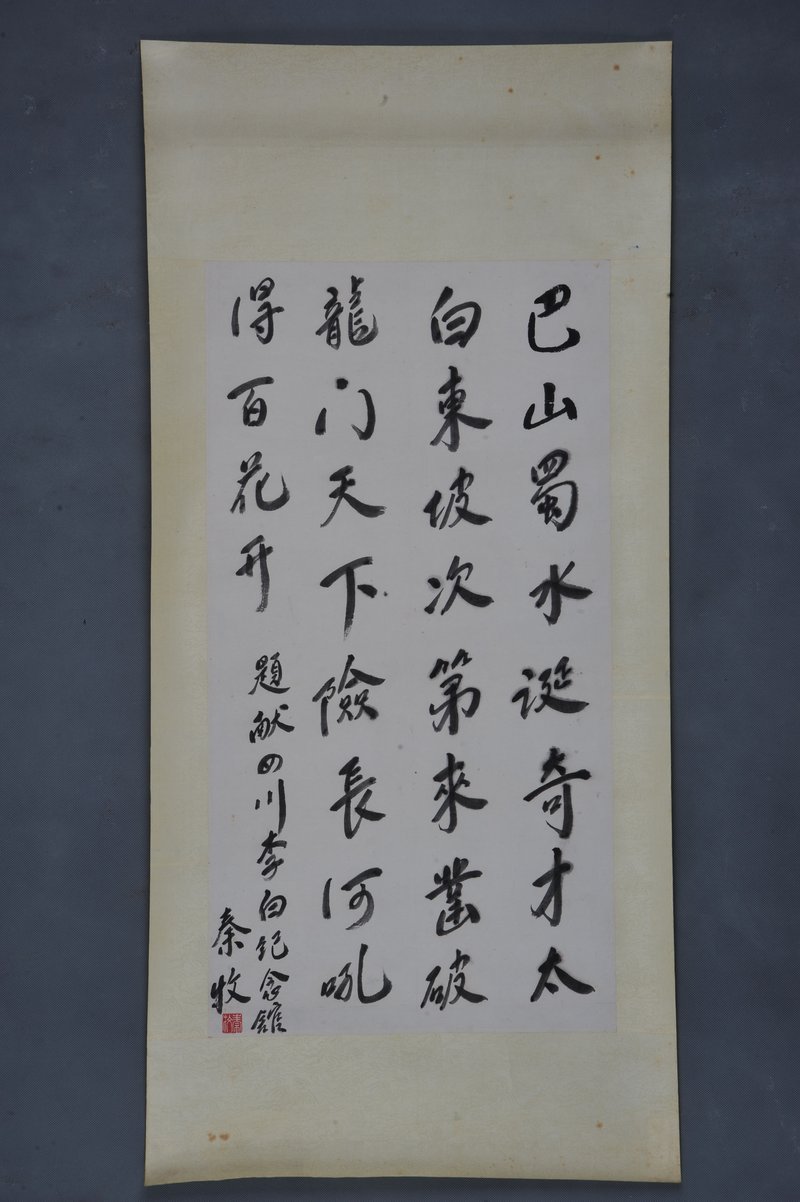 巴山蜀水诞奇才太
白東坡次第来凿破
龍门天下險長河吼
得百花开
题献四川李白纪念館
秦牧